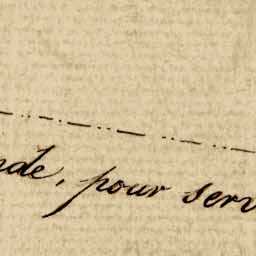 nde, pour serv